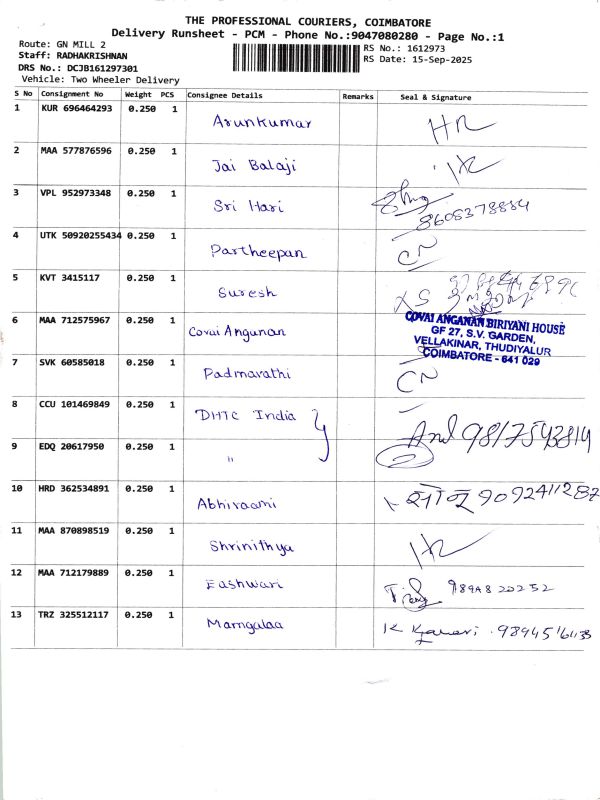 THE PROFESSIONAL COURIERS, COIMBATORE
Delivery Runsheet - PCM - Phone No.:9047080280 - Page No.:1
Route: GN MILL 2
RS No.: 1612973
Staff: RADHAKRISHNAN
RS Date: 15-Sep-2025
DRS No.: DCJB161297301
Vehicle: Two Wheeler Delivery
S No Consignment No Weight PCS Consignee Details Remarks Seal & Signature
1 KUR 696464293 0.250 1 Arunkumar
2 MAA 577876596 0.250 1 Jai Balaji
3 VPL 952973348 0.250 1 Sri Hari
4 UTK 50920255434 0.250 1 Partheepan CN
5 KVT 3415117 0.250 1 Suresh
6 MAA 712575967 0.250 1 Covai Angunan
COVAI ANGANAN BIRIYANI HOUSE
GF 27, S.V. GARDEN,
VELLAKINAR, THUDIYALUR
COIMBATORE - 641 029
7 SVK 60585018 0.250 1 Padmavathi CN
8 CCU 101469849 0.250 1 DHTC India
9 EDQ 20617950 0.250 1 "
10 HRD 362534891 0.250 1 Abhiraami
11 MAA 870898519 0.250 1 Shrinithya
12 MAA 712179889 0.250 1 Eashwari
13 TRZ 325512117 0.250 1 Marngalaa